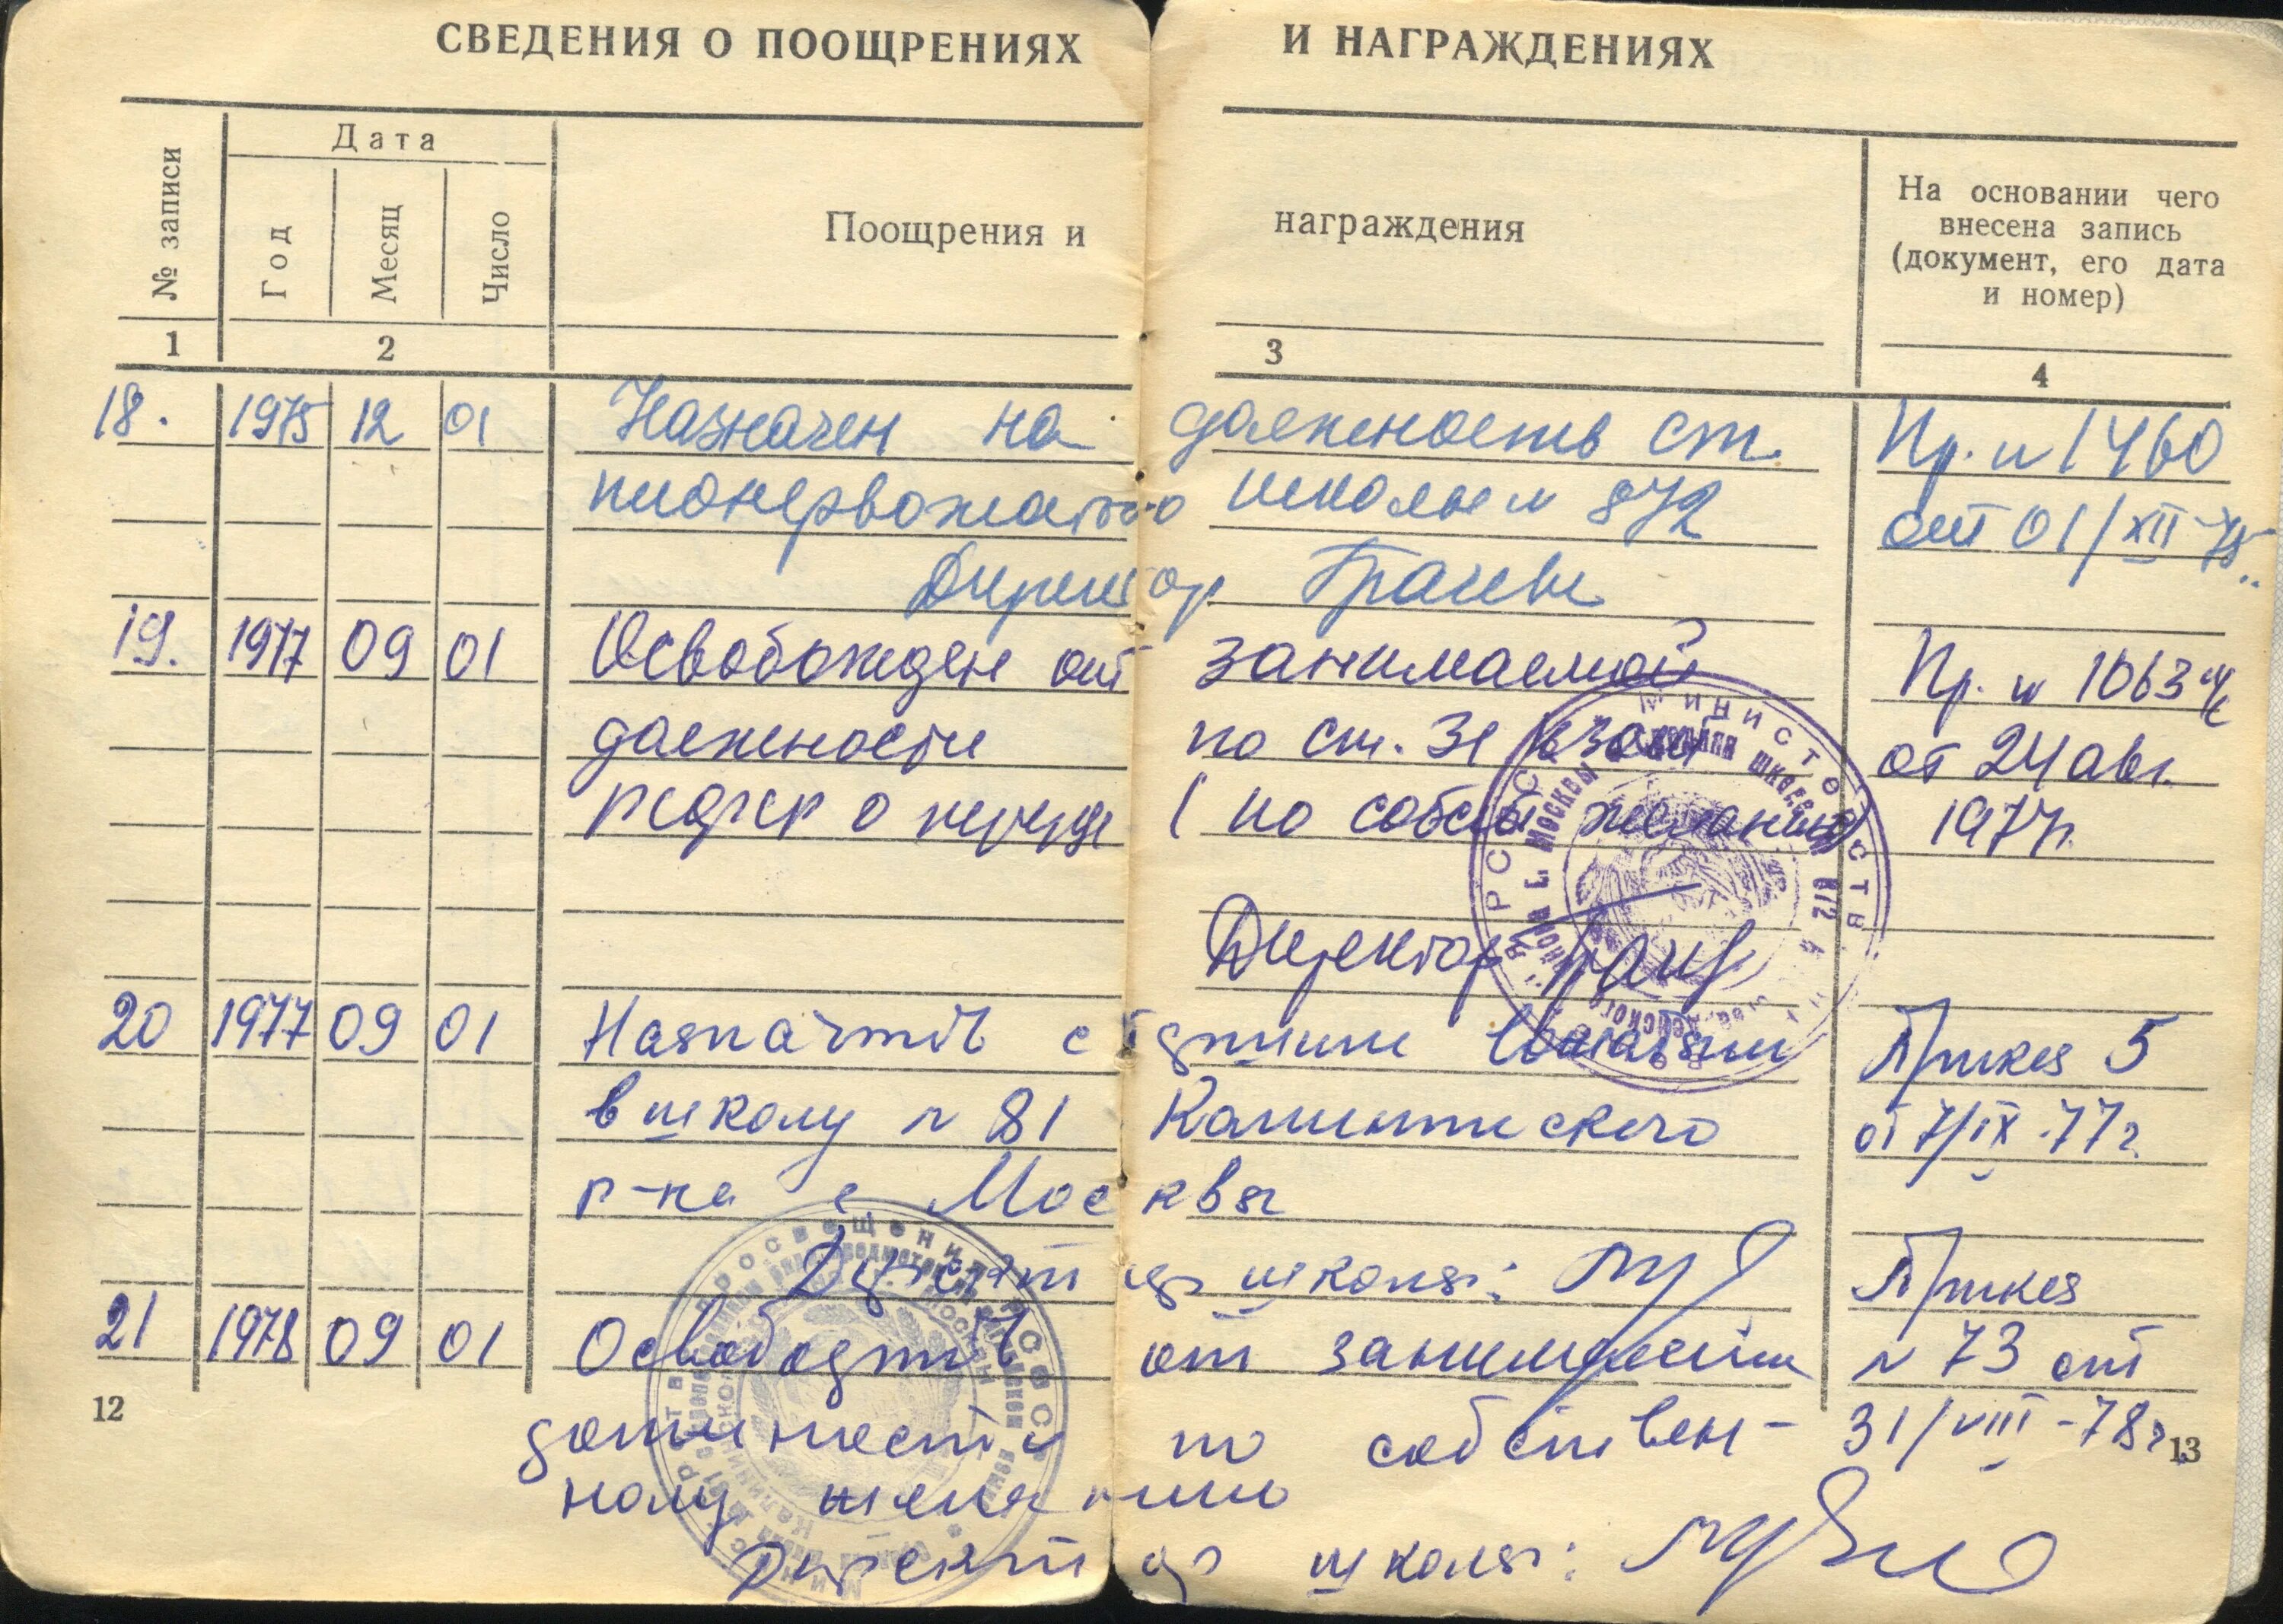 СВЕДЕНИЯ О ПООЩРЕНИЯХ И НАГРАЖДЕНИЯХ
№ записи
Дата
Год
Месяц
Число
Поощрения и награждения
На основании чего
внесена запись
(документ, его дата
и номер)
1 2 3 4
18. 1975 12 01 Назначен на должность ст. Пр. № 1460
пионервожатого школы № 872 от 01/XII-75
Директор
19. 1977 09 01 Освобожден от занимаемой Пр. № 1063
должности по ст. 31 КЗоТ от 24 авг.
РСФСР о (по собств желанию) 1977г.
Директор
20 1977 09 01 Назначить вожатым Приказ 5
в школу № 81 Калининского от 7/IX-77г
р-на г Москвы
Директор школы: Приказ
21 1978 09 01 Освободить от занимаемой № 73 от
должности по собствен- 31/VIII-78г.
ному желанию
Директор школы:
12
13